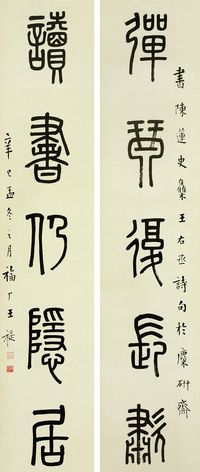 書陳蓮史集王右丞詩句於麋研齋
彈琴復長歗
讀書仍隱居
辛巳孟冬之月福厂王褆